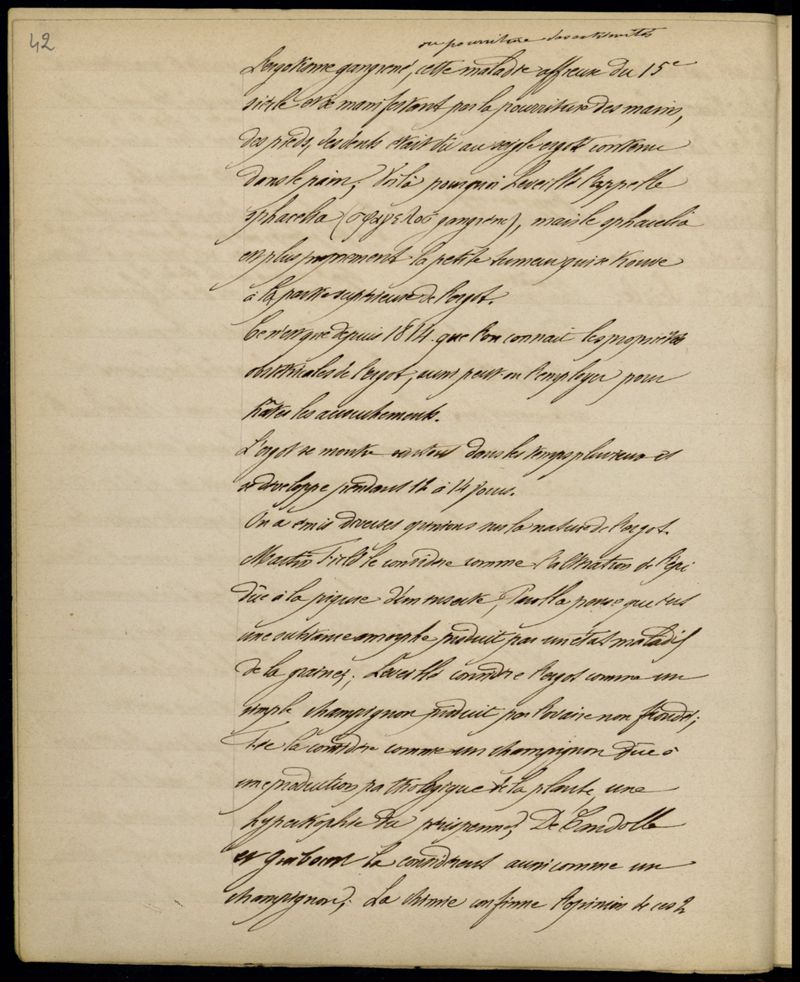 42
ou pourriture des extrémités
L'ergotisme gangrené, cette maladie affreuse du 15e
siècle et se manifestant par la pourriture des mains,
des pieds, des dents était dû au seigle ergoté contenu
dans le pain; Voilà pourquoi Léveillé l'appelle
sphacelia (σφαγελοσ gangrène), mais le sphacelia
est plus proprement la petite tumeur qui se trouve
à la partie supérieure de l'ergot.
Ce n'est que depuis 1814 que l'on connait les propriétés
obstétricales de l'ergot, aussi peut-on l'employer pour
hâter les accouchements.
L'ergot se montre surtout dans les temps pluvieux et
se développe pendant 12 à 14 jours.
On a émis diverses opinions sur la nature de l'ergot.
Martin Field le considère comme l'altération de l'épi
dûe à la piqure d'un insecte, pense que c'est
une substance amorphe produit par un état maladif
de la graine; Léveillé considère l'ergot comme un
simple champignon produit par l'ovaire non fécondé;
Fée la considère comme un champignon dûe à
une production pathologique de la plante, une
hypertrophie du périsperme; De Candolle
et Guibourt la considèrent aussi comme un
champignon; La chimie confirme l'opinion de ces 2